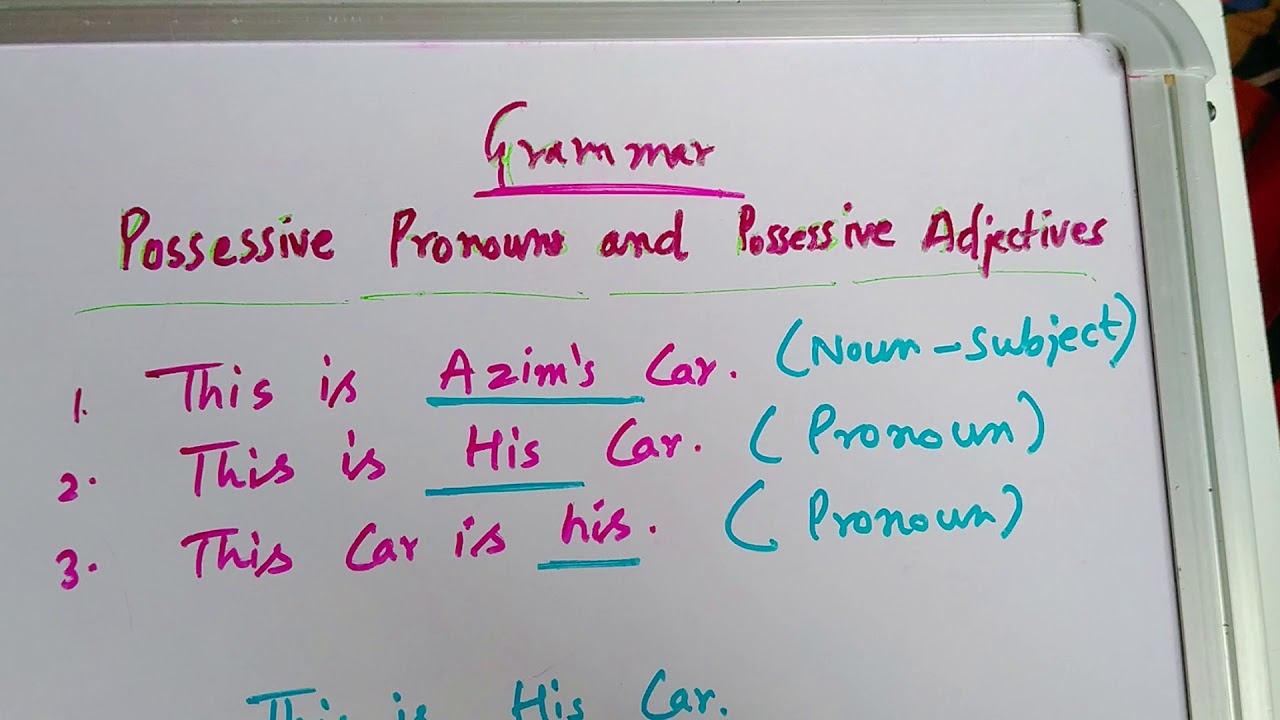 Grammar
Possessive Pronouns and Possessive Adjectives
1. This is Azim's Car. (Noun-Subject)
2. This is His Car. (Pronoun)
3. This Car is his. (Pronoun)
This is His Car.